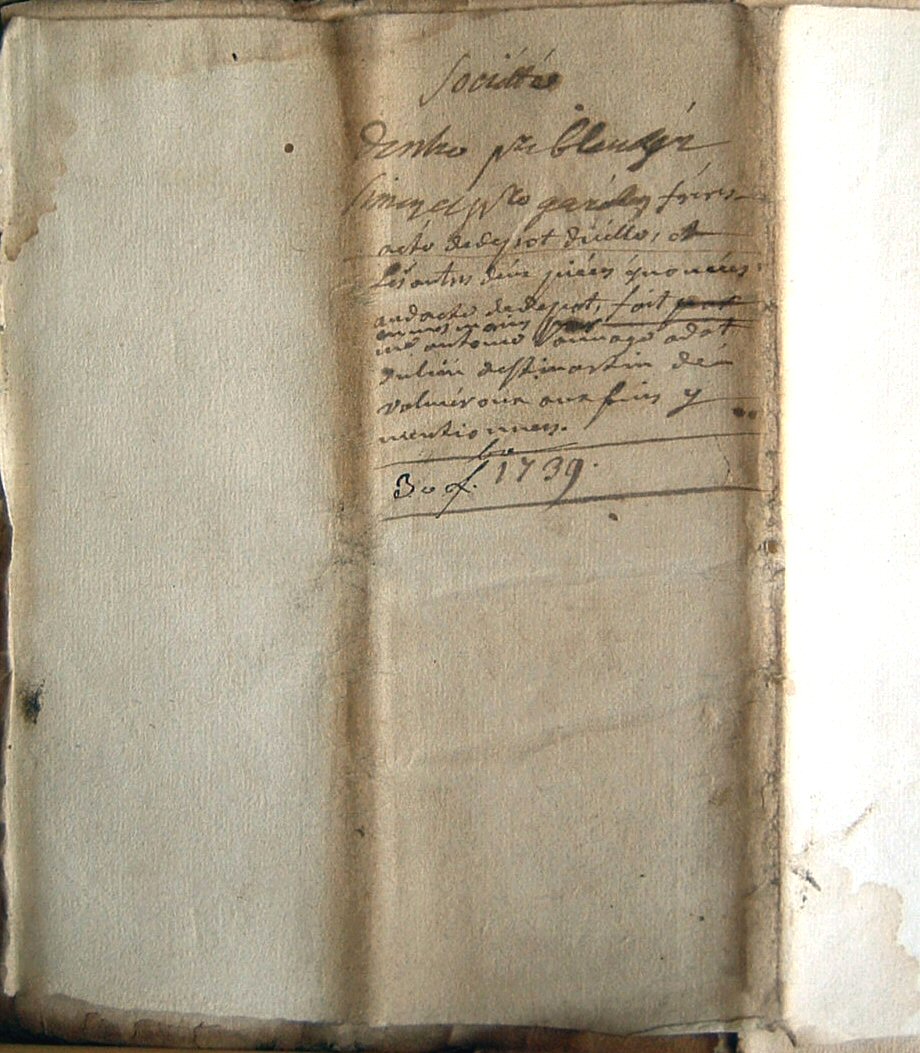 Sociétté
Dentre pre
Simon et pre garde frères
acte dedepot dicelle, et
Les autres deux pieces énoncées
audacte dedepot, fait
en nos mains
me antoine Sauvage
dulieu destmartin de
valmeroux aux fins y
mentionnees.
30 f. bre 1739.